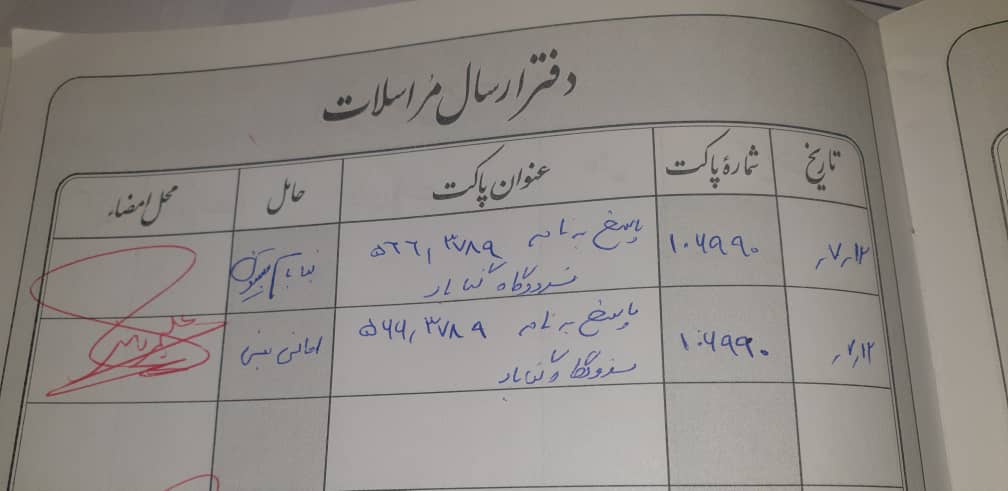 دفتر ارسال مُراسلات
تاریخ شمارهٔ پاکت عنوان پاکت حامل محل امضاء
۷٫۱۲ ۱۰۶۹۹۰ پاسخ به نامه ۵۶۶٫۳۷۸۹
فرودگاه گناباد
۷٫۱۲ ۱۰۶۹۹۰ پاسخ به نامه ۵۶۶٫۳۷۸۹
فرودگاه گناباد